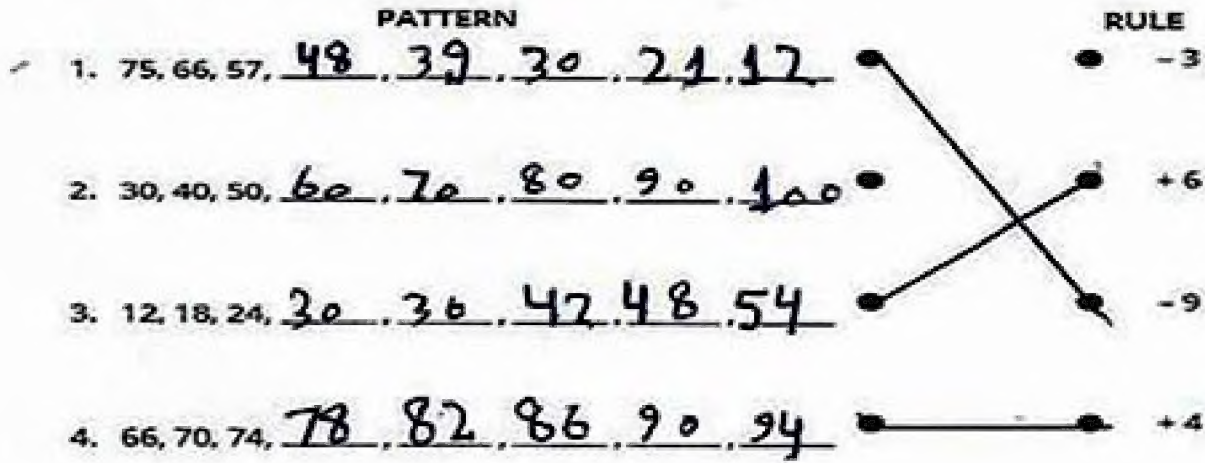 PATTERN RULE
1. 75, 66, 57, 48, 39, 30, 21, 12 -3
2. 30, 40, 50, 60, 70, 80, 90, 100 +6
3. 12, 18, 24, 30, 36, 42, 48, 54 -9
4. 66, 70, 74, 78, 82, 86, 90, 94 +4